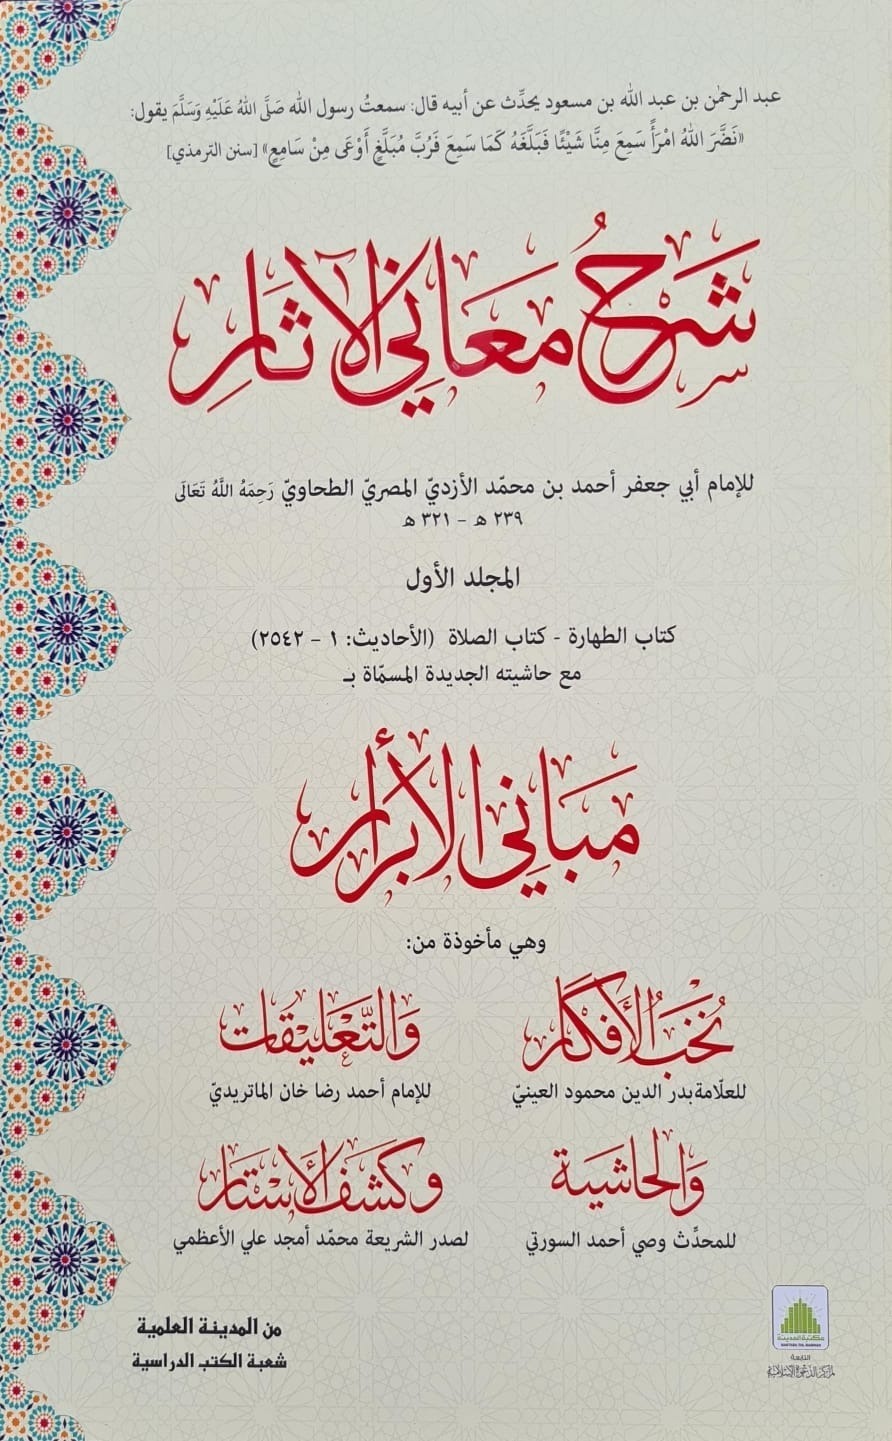 عبد الرحمٰن بن عبد الله بن مسعود يحدِّث عن أبيه قال: سمعتُ رسول الله صَلَّى اللهُ عَلَيْهِ وَسَلَّمَ يقول:
«نَضَّرَ اللهُ امْرَأً سَمِعَ مِنَّا شَيْئًا فَبَلَّغَهُ كَمَا سَمِعَ فَرُبَّ مُبَلَّغٍ أَوْعَى مِنْ سَامِعٍ» [سنن الترمذي]
شَرحُ مَعَاني الآثَارِ
للإمام أبي جعفر أحمد بن محمّد الأزديّ المصريّ الطحاويّ رَحِمَهُ اللَّهُ تَعَالَى
٢٣٩ ھ - ٣٢١ ھ
المجلد الأول
كتاب الطهارة - كتاب الصلاة (الأحاديث: ١ - ٢٥٤٢)
مع حاشيته الجديدة المسمّاة بـ
مَبَاني الأبرار
وهي مأخوذة من:
نُخَبُ الأَفْكَار
للعلّامة بدر الدين محمود العينيّ
وَالتَّعْلِيْقَات
للإمام أحمد رضا خان الماتريديّ
وَالحَاشِيَة
للمحدِّث وصي أحمد السورتي
وكَشفِ الأَسْتَار
لصدر الشريعة محمّد أمجد علي الأعظمي
من المدينة العلمية
شعبة الكتب الدراسية
مكتبة المدينة
MAKTABA-TUL-MADINAH
التابعة
لمركز الدعوة الإسلامية